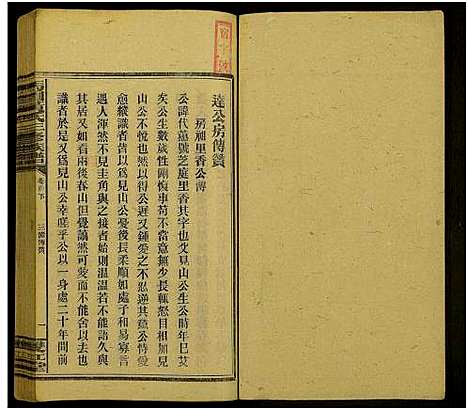 達公房傳贊
房昶里香公傳
公諱代蕙號芝庭里香其字也父見山公生公時年巳艾
矣公生數歲性剛愎事苟不當意無少長輒怒目相加見
山公不悅也然以得公遲又鍾愛之不忍逆其意公恃愛
愈縱識者皆以爲見山公憂後長柔順如處子和易寡言
笑渾然不見圭角與之接者始則溫溫若不能語久與
其居如坐春山但覺藹然可愛而不能舍以去也
識者於是又爲見山公幸嗟乎公以一身處二十年間前
三修族譜
卷首下
三編傳贊
一